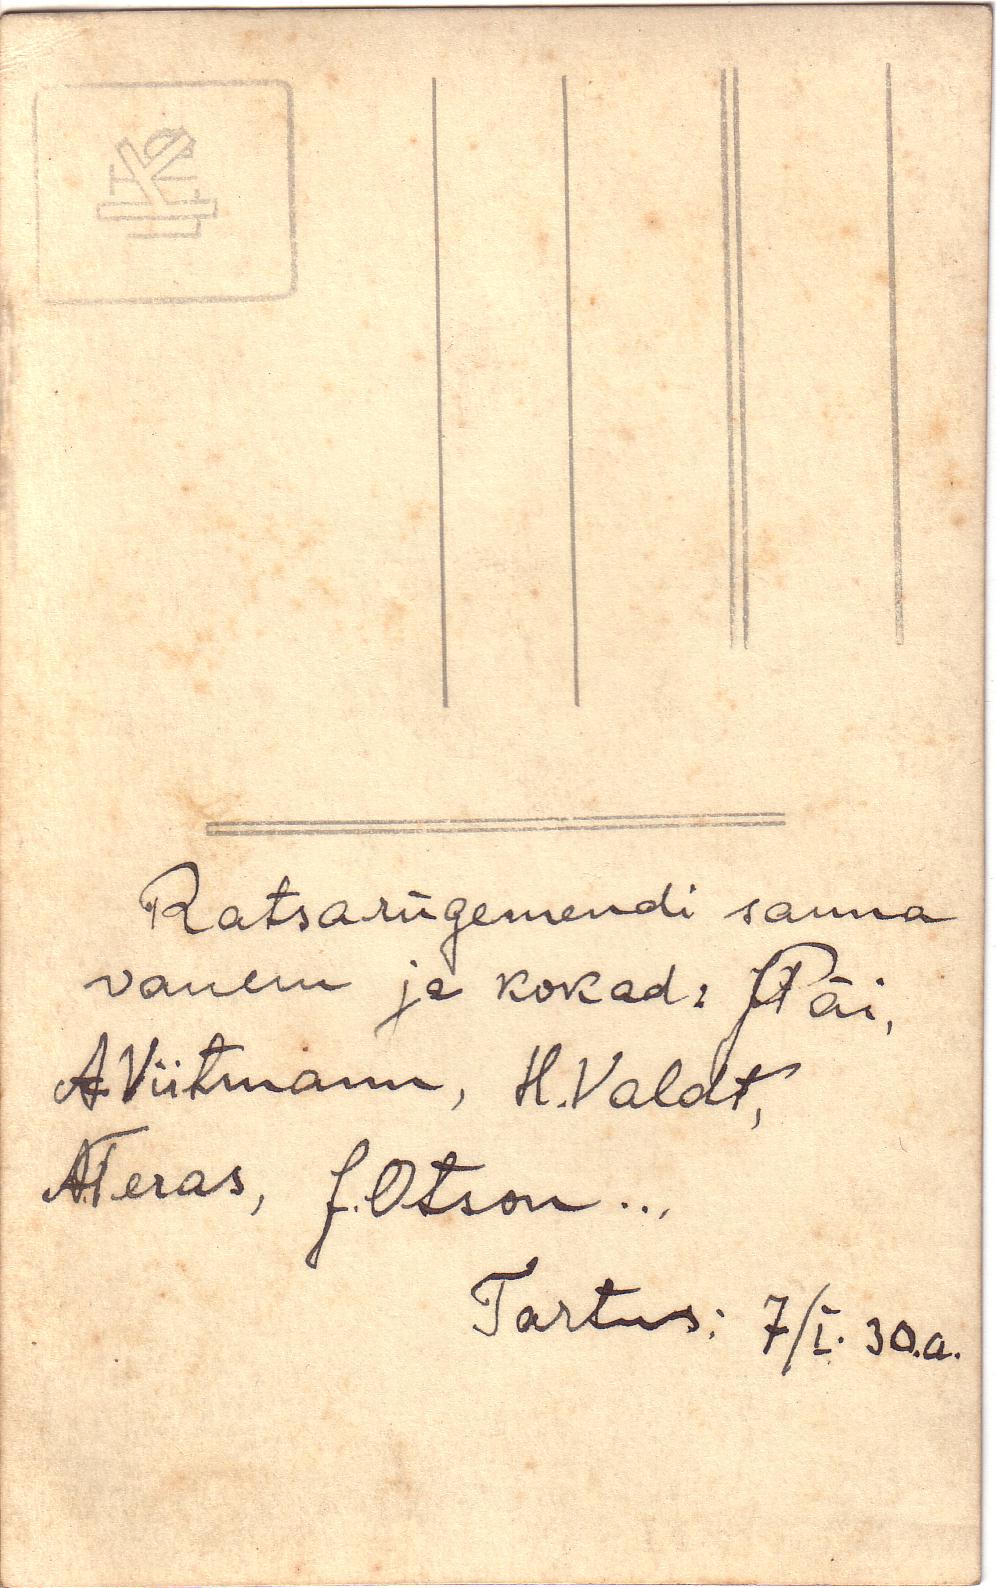 Ratsarügemendi sauna
vanem ja kokad: J.Päi,
A.Viitmann, H.Valdt,
A.Teras, J.Otson...
Tartus: 7/I. 30.a.